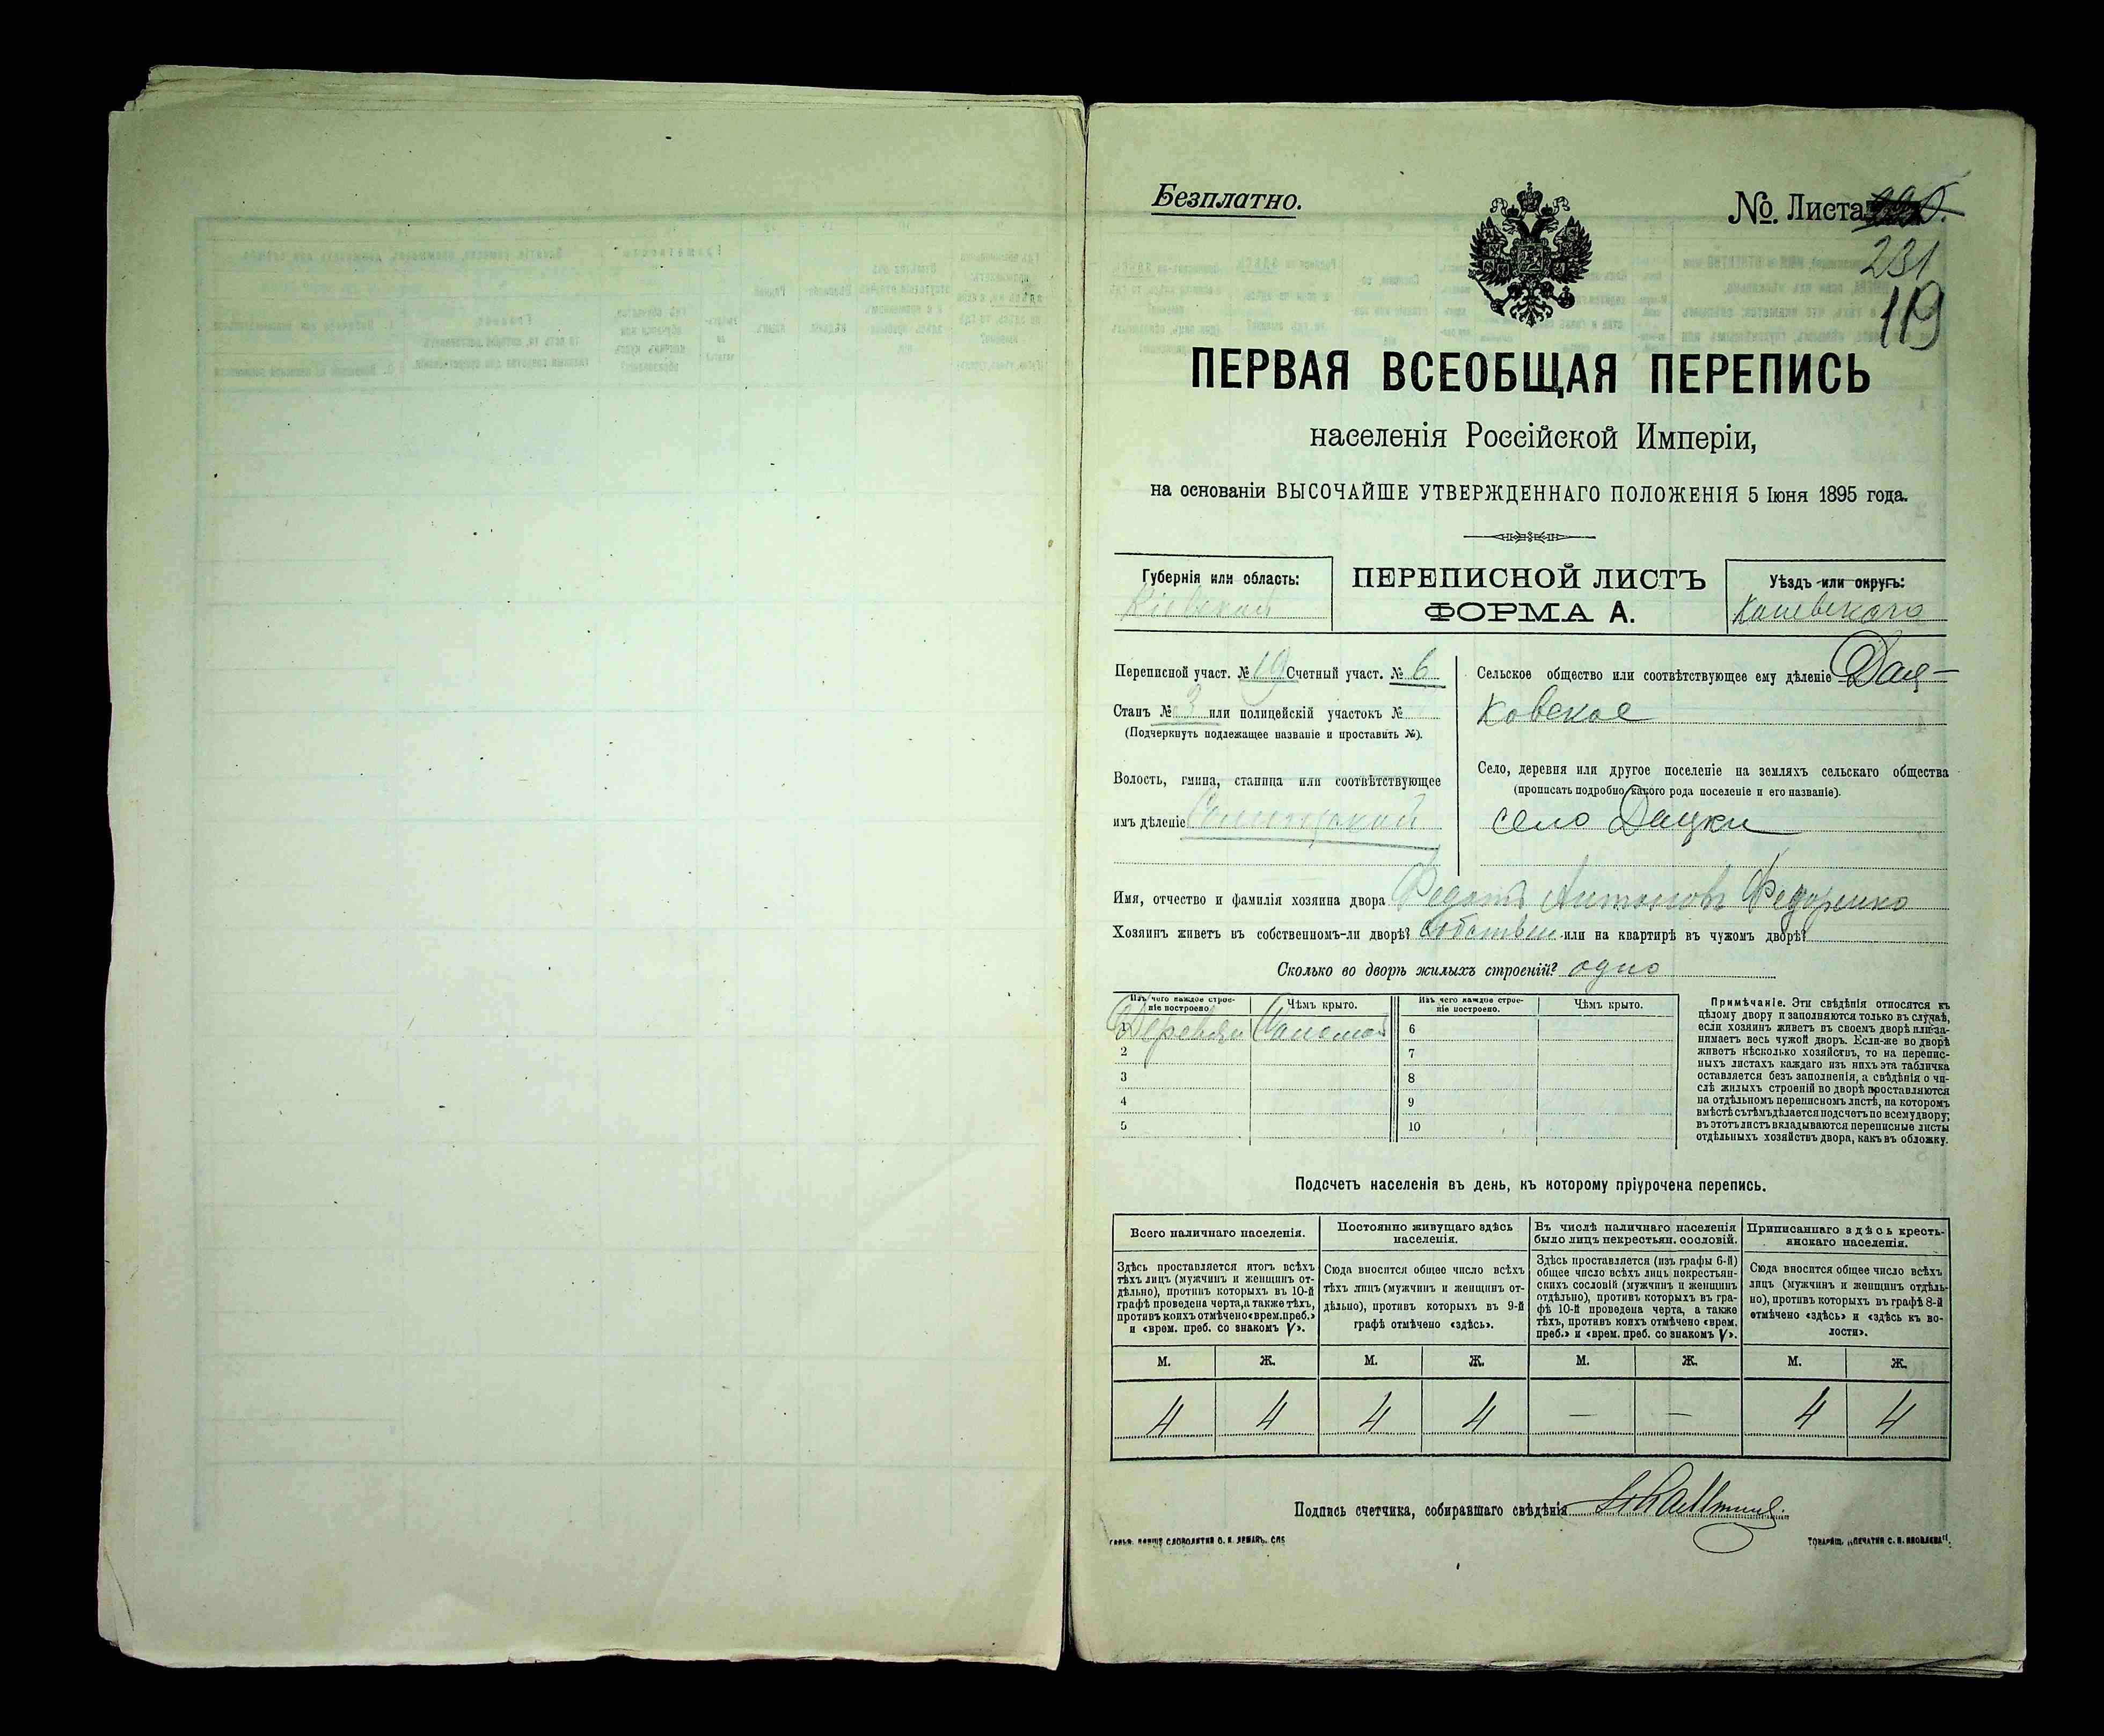 Безплатно.
№ Листа
231
119
ПЕРВАЯ ВСЕОБЩАЯ ПЕРЕПИСЬ
населенія Россійской Имперіи,
на основаніи ВЫСОЧАЙШЕ УТВЕРЖДЕННАГО ПОЛОЖЕНІЯ 5 Іюня 1895 года.
Губернія или область:
Кіевская
ПЕРЕПИСНОЙ ЛИСТЪ
ФОРМА А.
Уѣздъ или округъ:
Каневскаго
Переписной участ. № 19 Счетный участ. № 6
Станъ № 3 или полицейскій участокъ №
(Подчеркнуть подлежащее названіе и проставить №).
Волость, гмина, станица или соотвѣтствующее
имъ дѣленіе
Сельское общество или соотвѣтствующее ему дѣленіе Дац-
ковское
Село, деревня или другое поселеніе на земляхъ сельскаго общества
(прописать подробно какого рода поселеніе и его названіе).
село Дацки
Имя, отчество и фамилія хозяина двора Федотъ Антоновъ Федоренко
Хозяинъ живетъ въ собственномъ-ли дворѣ? Собствен или на квартирѣ въ чужомъ дворѣ?
Сколько во дворѣ жилыхъ строеній? одно
Изъ чего каждое строе-
ніе построено.
Чѣмъ крыто.
Изъ чего каждое строе-
ніе построено.
Чѣмъ крыто.
1 Деревян Соломой 6
2 7
3 8
4 9
5 10
Примѣчаніе. Эти свѣдѣнія относятся къ
цѣлому двору и заполняются только въ случаѣ,
если хозяинъ живетъ въ своемъ дворѣ или за-
нимаетъ весь чужой дворъ. Если-же во дворѣ
живетъ нѣсколько хозяйствъ, то на перепис-
ныхъ листахъ каждаго изъ нихъ эта табличка
оставляется безъ заполненія, а свѣдѣнія о чи-
слѣ жилыхъ строеній во дворѣ проставляются
на отдѣльномъ переписномъ листѣ, на которомъ
вмѣстѣ съ тѣмъ дѣлается подсчетъ по всему двору;
въ этотъ листъ вкладываются переписные листы
отдѣльныхъ хозяйствъ двора, какъ въ обложку.
Подсчетъ населенія въ день, къ которому пріурочена перепись.
Всего наличнаго населенія.
Здѣсь проставляется итогъ всѣхъ
тѣхъ лицъ (мужчинъ и женщинъ от-
дѣльно), противъ которыхъ въ 10-й
графѣ проведена черта, а также тѣхъ,
противъ коихъ отмѣчено «врем. преб.»
и «врем. преб. со знакомъ V».
Постоянно живущаго здѣсь
населенія.
Сюда вносится общее число всѣхъ
тѣхъ лицъ (мужчинъ и женщинъ от-
дѣльно), противъ которыхъ въ 9-й
графѣ отмѣчено «здѣсь».
Въ числѣ наличнаго населенія
было лицъ некрестьян. сословій.
Здѣсь проставляется (изъ графы 6-й)
общее число всѣхъ лицъ некрестьян-
скихъ сословій (мужчинъ и женщинъ
отдѣльно), противъ которыхъ въ гра-
фѣ 10-й проведена черта, а также
тѣхъ, противъ коихъ отмѣчено «врем.
преб.» и «врем. преб. со знакомъ V».
Приписаннаго здѣсь кресть-
янскаго населенія.
Сюда вносится общее число всѣхъ
лицъ (мужчинъ и женщинъ отдѣль-
но), противъ которыхъ въ графѣ 8-й
отмѣчено «здѣсь» и «здѣсь къ во-
лости».
М. Ж. М. Ж. М. Ж. М. Ж.
4 4 4 4 — — 4 4
Подпись счетчика, собиравшаго свѣдѣнія
СЛОВОЛИТНЯ О. И. ЛЕМАНЪ. СПБ
ТОВАРИЩ. „ПЕЧАТНЯ С. П. ЯКОВЛЕВА".